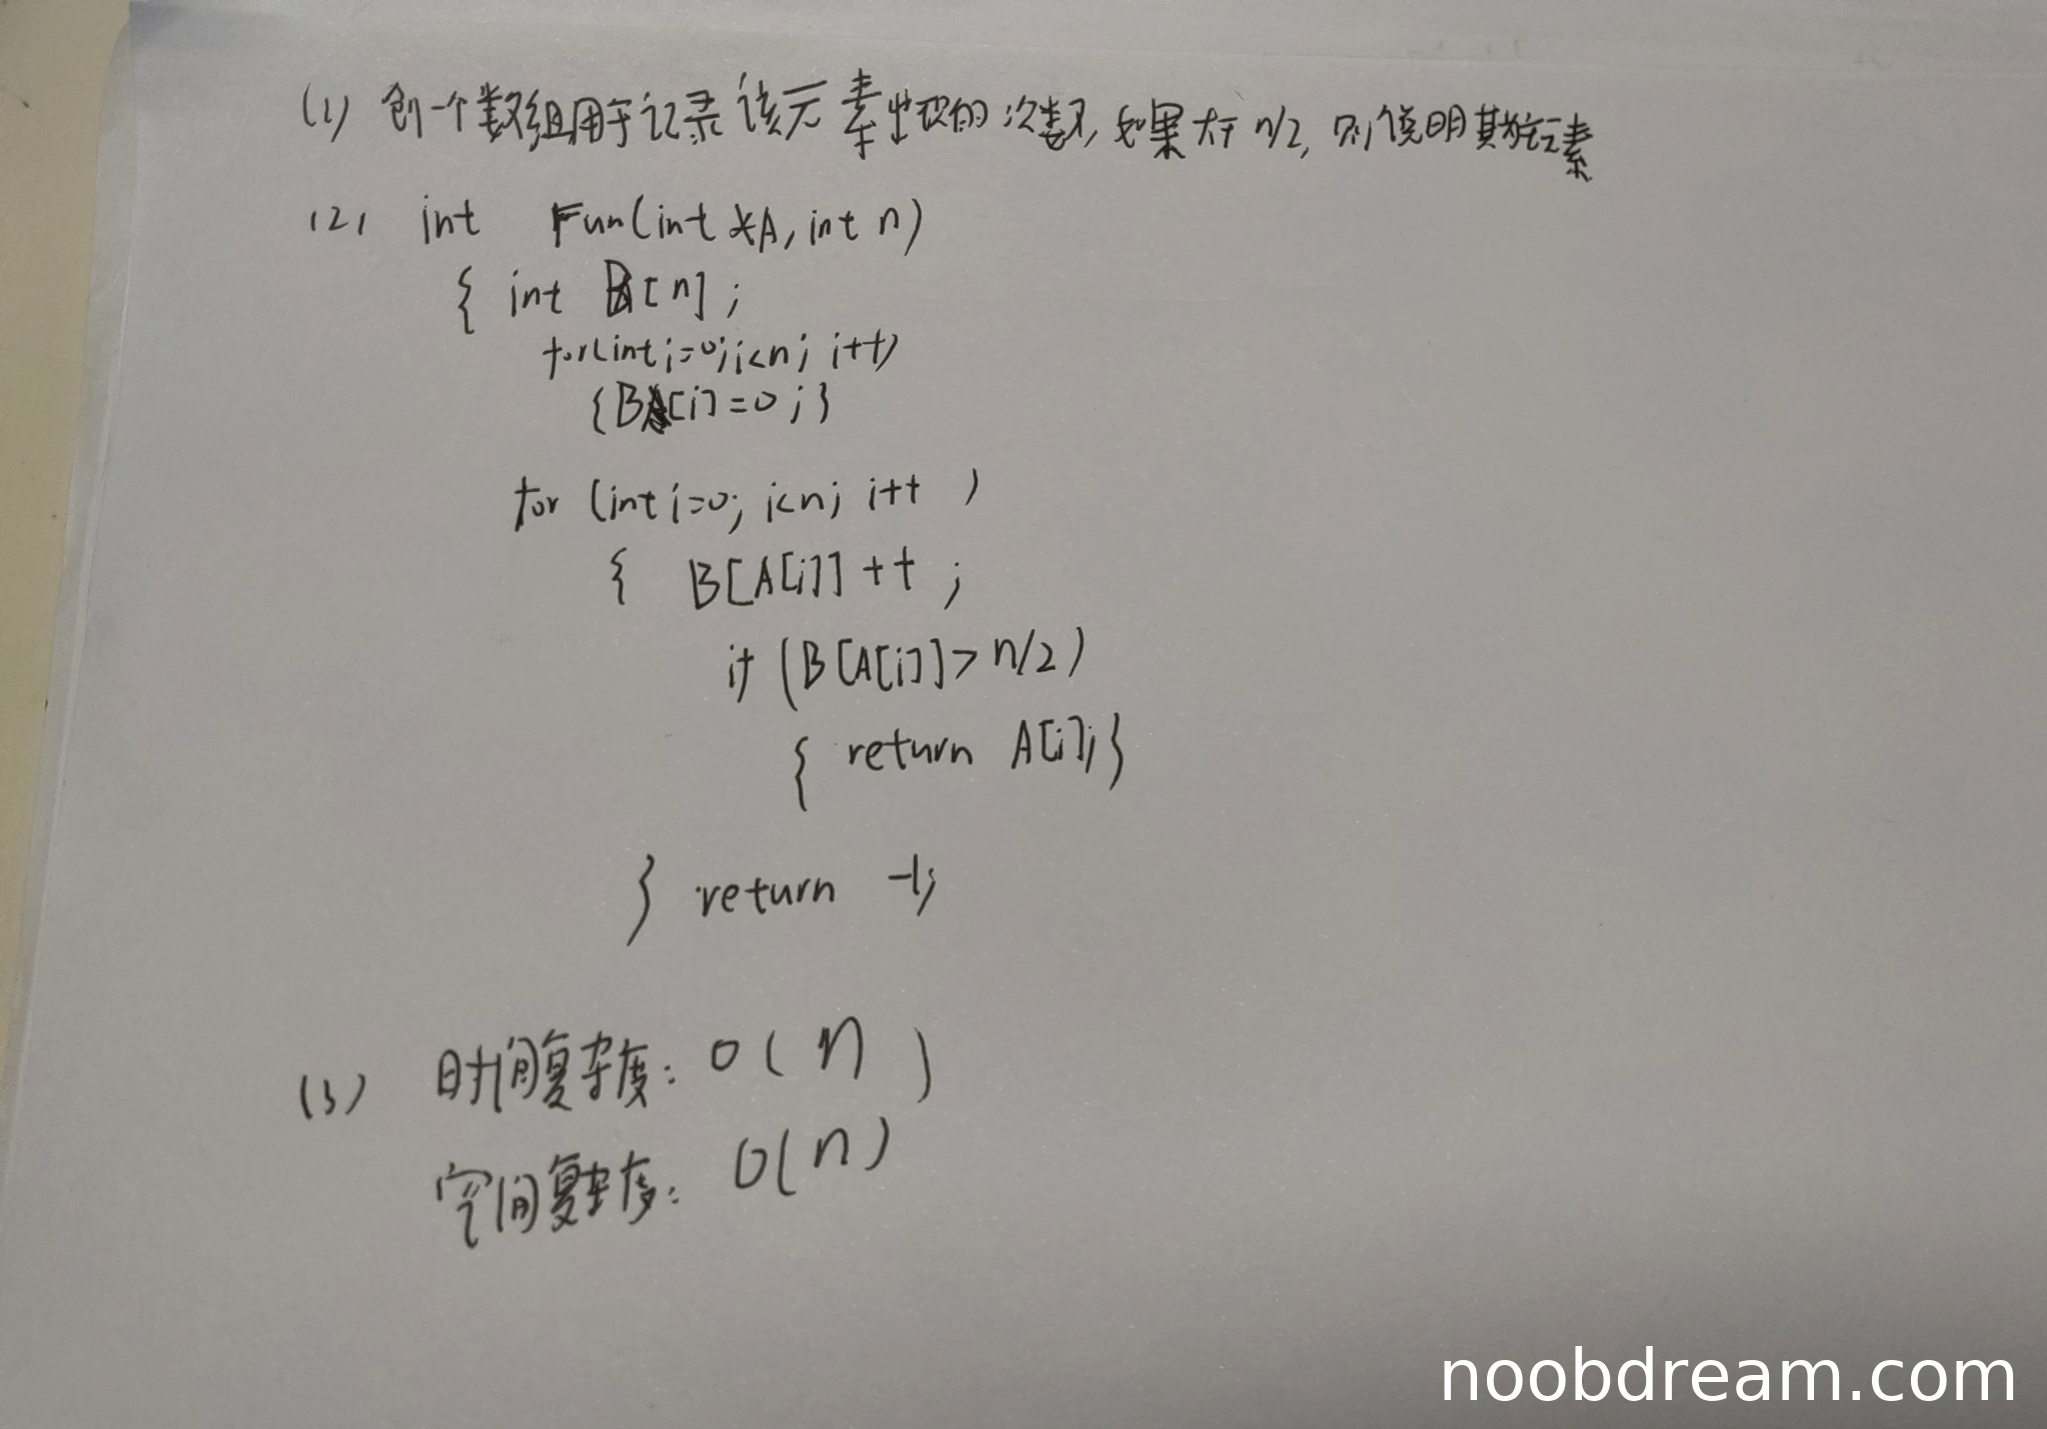 (1) 创一个数组用于记录该元素出现的次数,如果大于n/2,则说明其为主元素
(2) int Fun(int *A, int n)
{ int B[n];
for(int i=0;i<n; i++)
{B[i]=0;}
for (int i=0; i<n; i++ )
{ B[A[i]]++;
if (B[A[i]]>n/2)
{ return A[i];}
} return -1;
(3) 时间复杂度: O( n )
空间复杂度: O(n)
noobdream.com